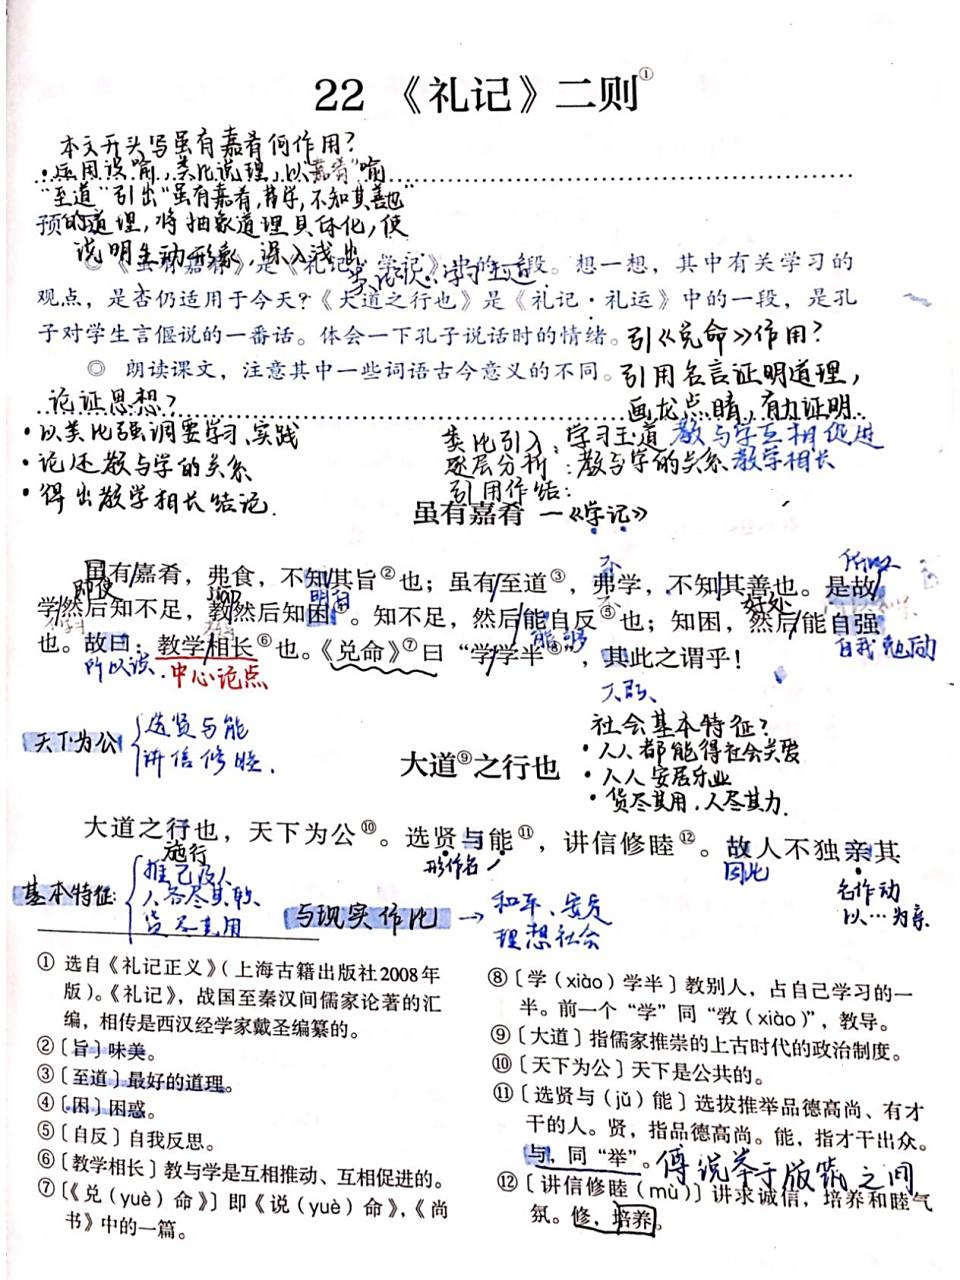 22 《礼记》二则①
本文开头写虽有嘉肴何作用?
·运用设喻,类比说理,以"嘉肴"喻
"至道"引出"虽有嘉肴,弗学,不知其善也"
的道理,将抽象道理具体化,使
说明生动形象,深入浅出
预
◎《虽有嘉肴》是《礼记·学记》中的一段。想一想,其中有关学习的
观点,是否仍适用于今天?《大道之行也》是《礼记·礼运》中的一段,是孔
子对学生言偃说的一番话。体会一下孔子说话时的情绪。
引《兑命》作用?
◎ 朗读课文,注意其中一些词语古今意义的不同。
引用名言证明道理,
画龙点睛,有力证明.
论证思想?
·以类比强调要学习、实践
·论述教与学的关系
·得出教学相长结论.
类比引入:学习至道 教与学互相促进
逐层分析:教与学的关系 教学相长
引用作结:
虽有嘉肴 —《学记》
虽有嘉肴,弗食,不知其旨②也;虽有至道③,弗学,不知其善也。是故
即使
不
好处
学然后知不足,教然后知困④。知不足,然后能自反⑤也;知困,然后能自强
不
能够
自我勉励
也。故曰:教学相长⑥也。《兑命》⑦曰"学学半⑧",其此之谓乎!
所以说.
中心论点
天下为公
选贤与能
讲信修睦.
社会基本特征?
·人人都能得社会关爱
·人人安居乐业
·货尽其用,人尽其力.
大道⑨之行也
大道之行也,天下为公⑩。选贤与能⑪,讲信修睦⑫。故人不独亲其
施行
形作名
因此
名作动
以…为亲
基本特征:
推己及人
货尽其用
与现实作比
→
和平、安定
理想社会
① 选自《礼记正义》(上海古籍出版社2008年
版)。《礼记》,战国至秦汉间儒家论著的汇
编,相传是西汉经学家戴圣编纂的。
②〔旨〕味美。
③〔至道〕最好的道理。
④〔困〕困惑。
⑤〔自反〕自我反思。
⑥〔教学相长〕教与学是互相推动、互相促进的。
⑦〔《兑(yuè)命》〕即《说(yuè)命》,《尚
书》中的一篇。
⑧〔学(xiào)学半〕教别人,占自己学习的一
半。前一个"学"同"敩(xiào)",教导。
⑨〔大道〕指儒家推崇的上古时代的政治制度。
⑩〔天下为公〕天下是公共的。
⑪〔选贤与(jǔ)能〕选拔推举品德高尚、有才
干的人。贤,指品德高尚。能,指才干出众。
与,同"举"。
傅说举于版筑之间
⑫〔讲信修睦(mù)〕讲求诚信,培养和睦气
氛。修,培养。